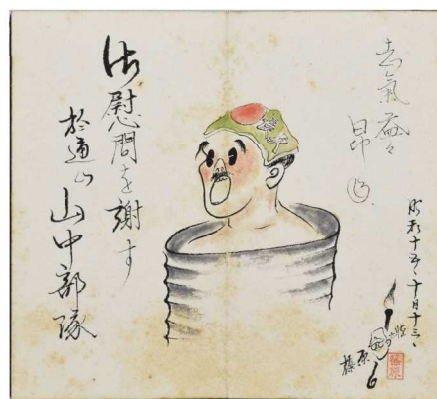 氣益々
昂
昭和十五、十月十三、
原
御慰問を謝す
於通山 山中部隊